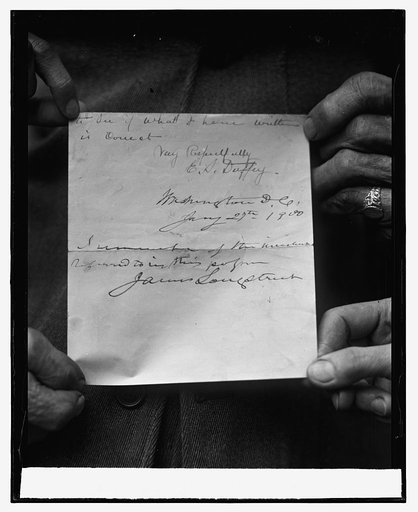 to see if what I have written
is Correct
Very Respectfully
E. D. Duffey.
Washington D. C.
Jany 29th 1900
I of the incident
referred to in this
James Longstreet